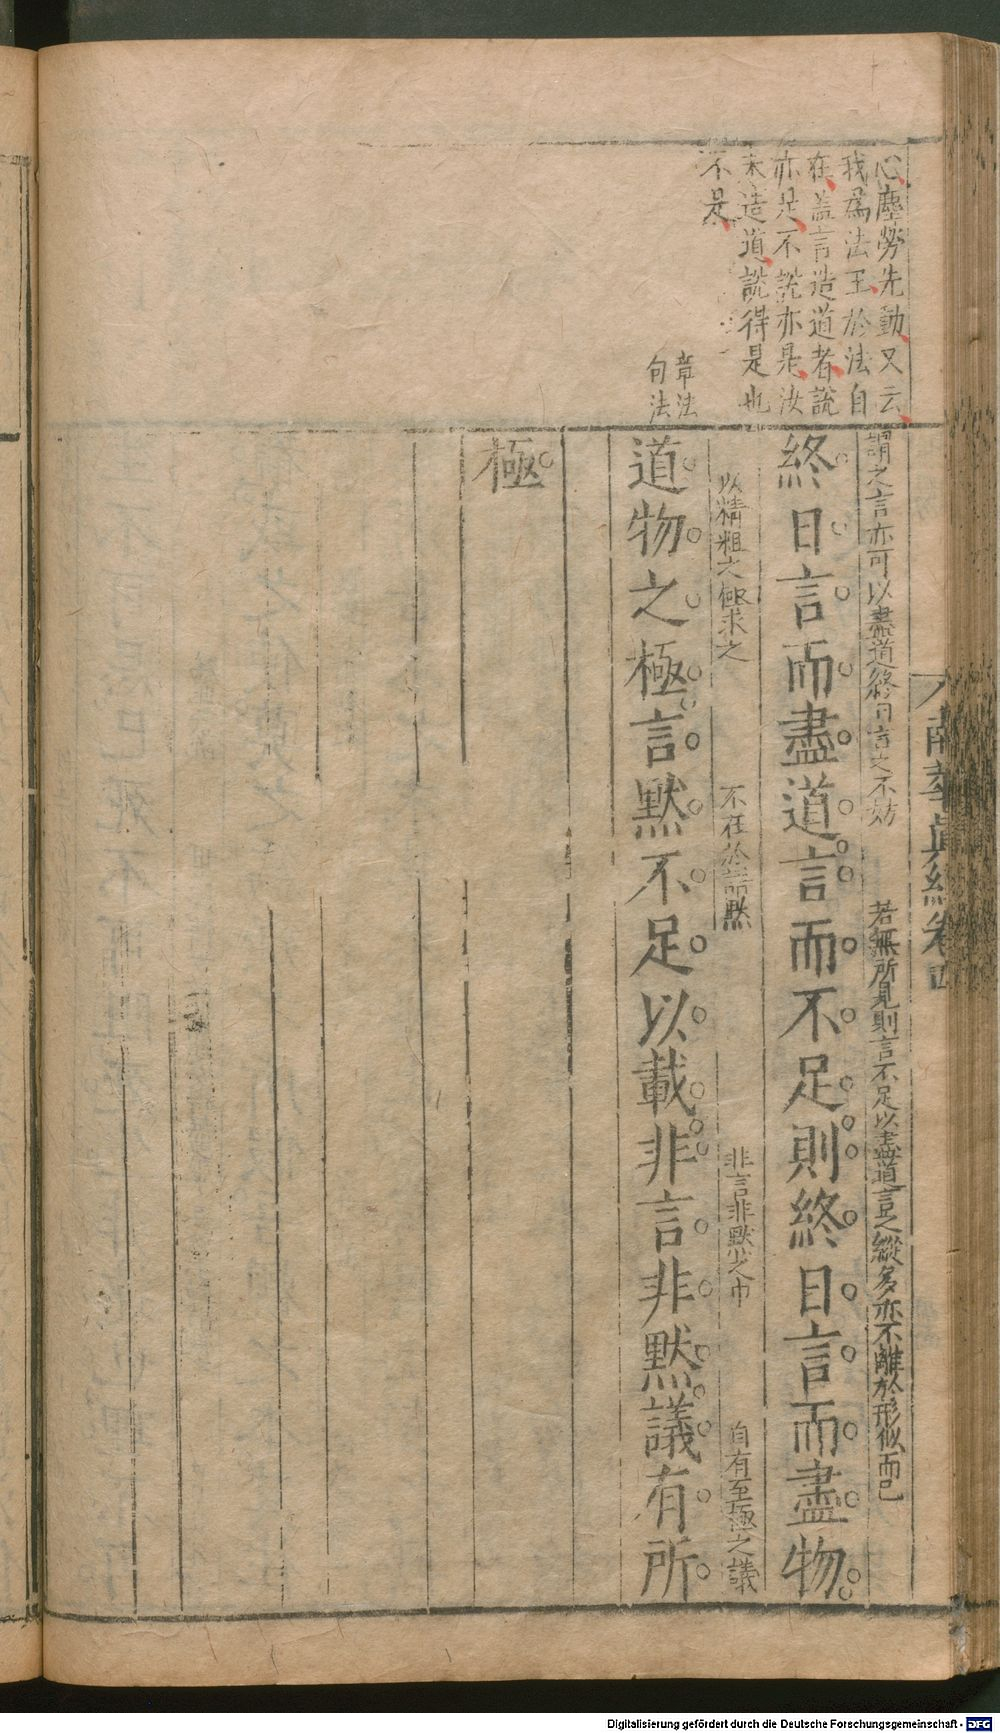 南華真經卷四
心塵勞先動又云
我為法王於法自
在蓋言造道者說
亦是不說亦是汝
未造道說得是也
不是
章法
句法
謂之言亦可以盡道終日言之不妨
若無所見則言不足以盡道言之縱多亦不離於形似而已
終日言而盡道言而不足則終日言而盡物
以精粗之極求之
不在於語默
非言非默之中
自有至極之議
道物之極言默不足以載非言非默議有所
極
Digitalisierung gefördert durch die Deutsche Forschungsgemeinschaft - DFG